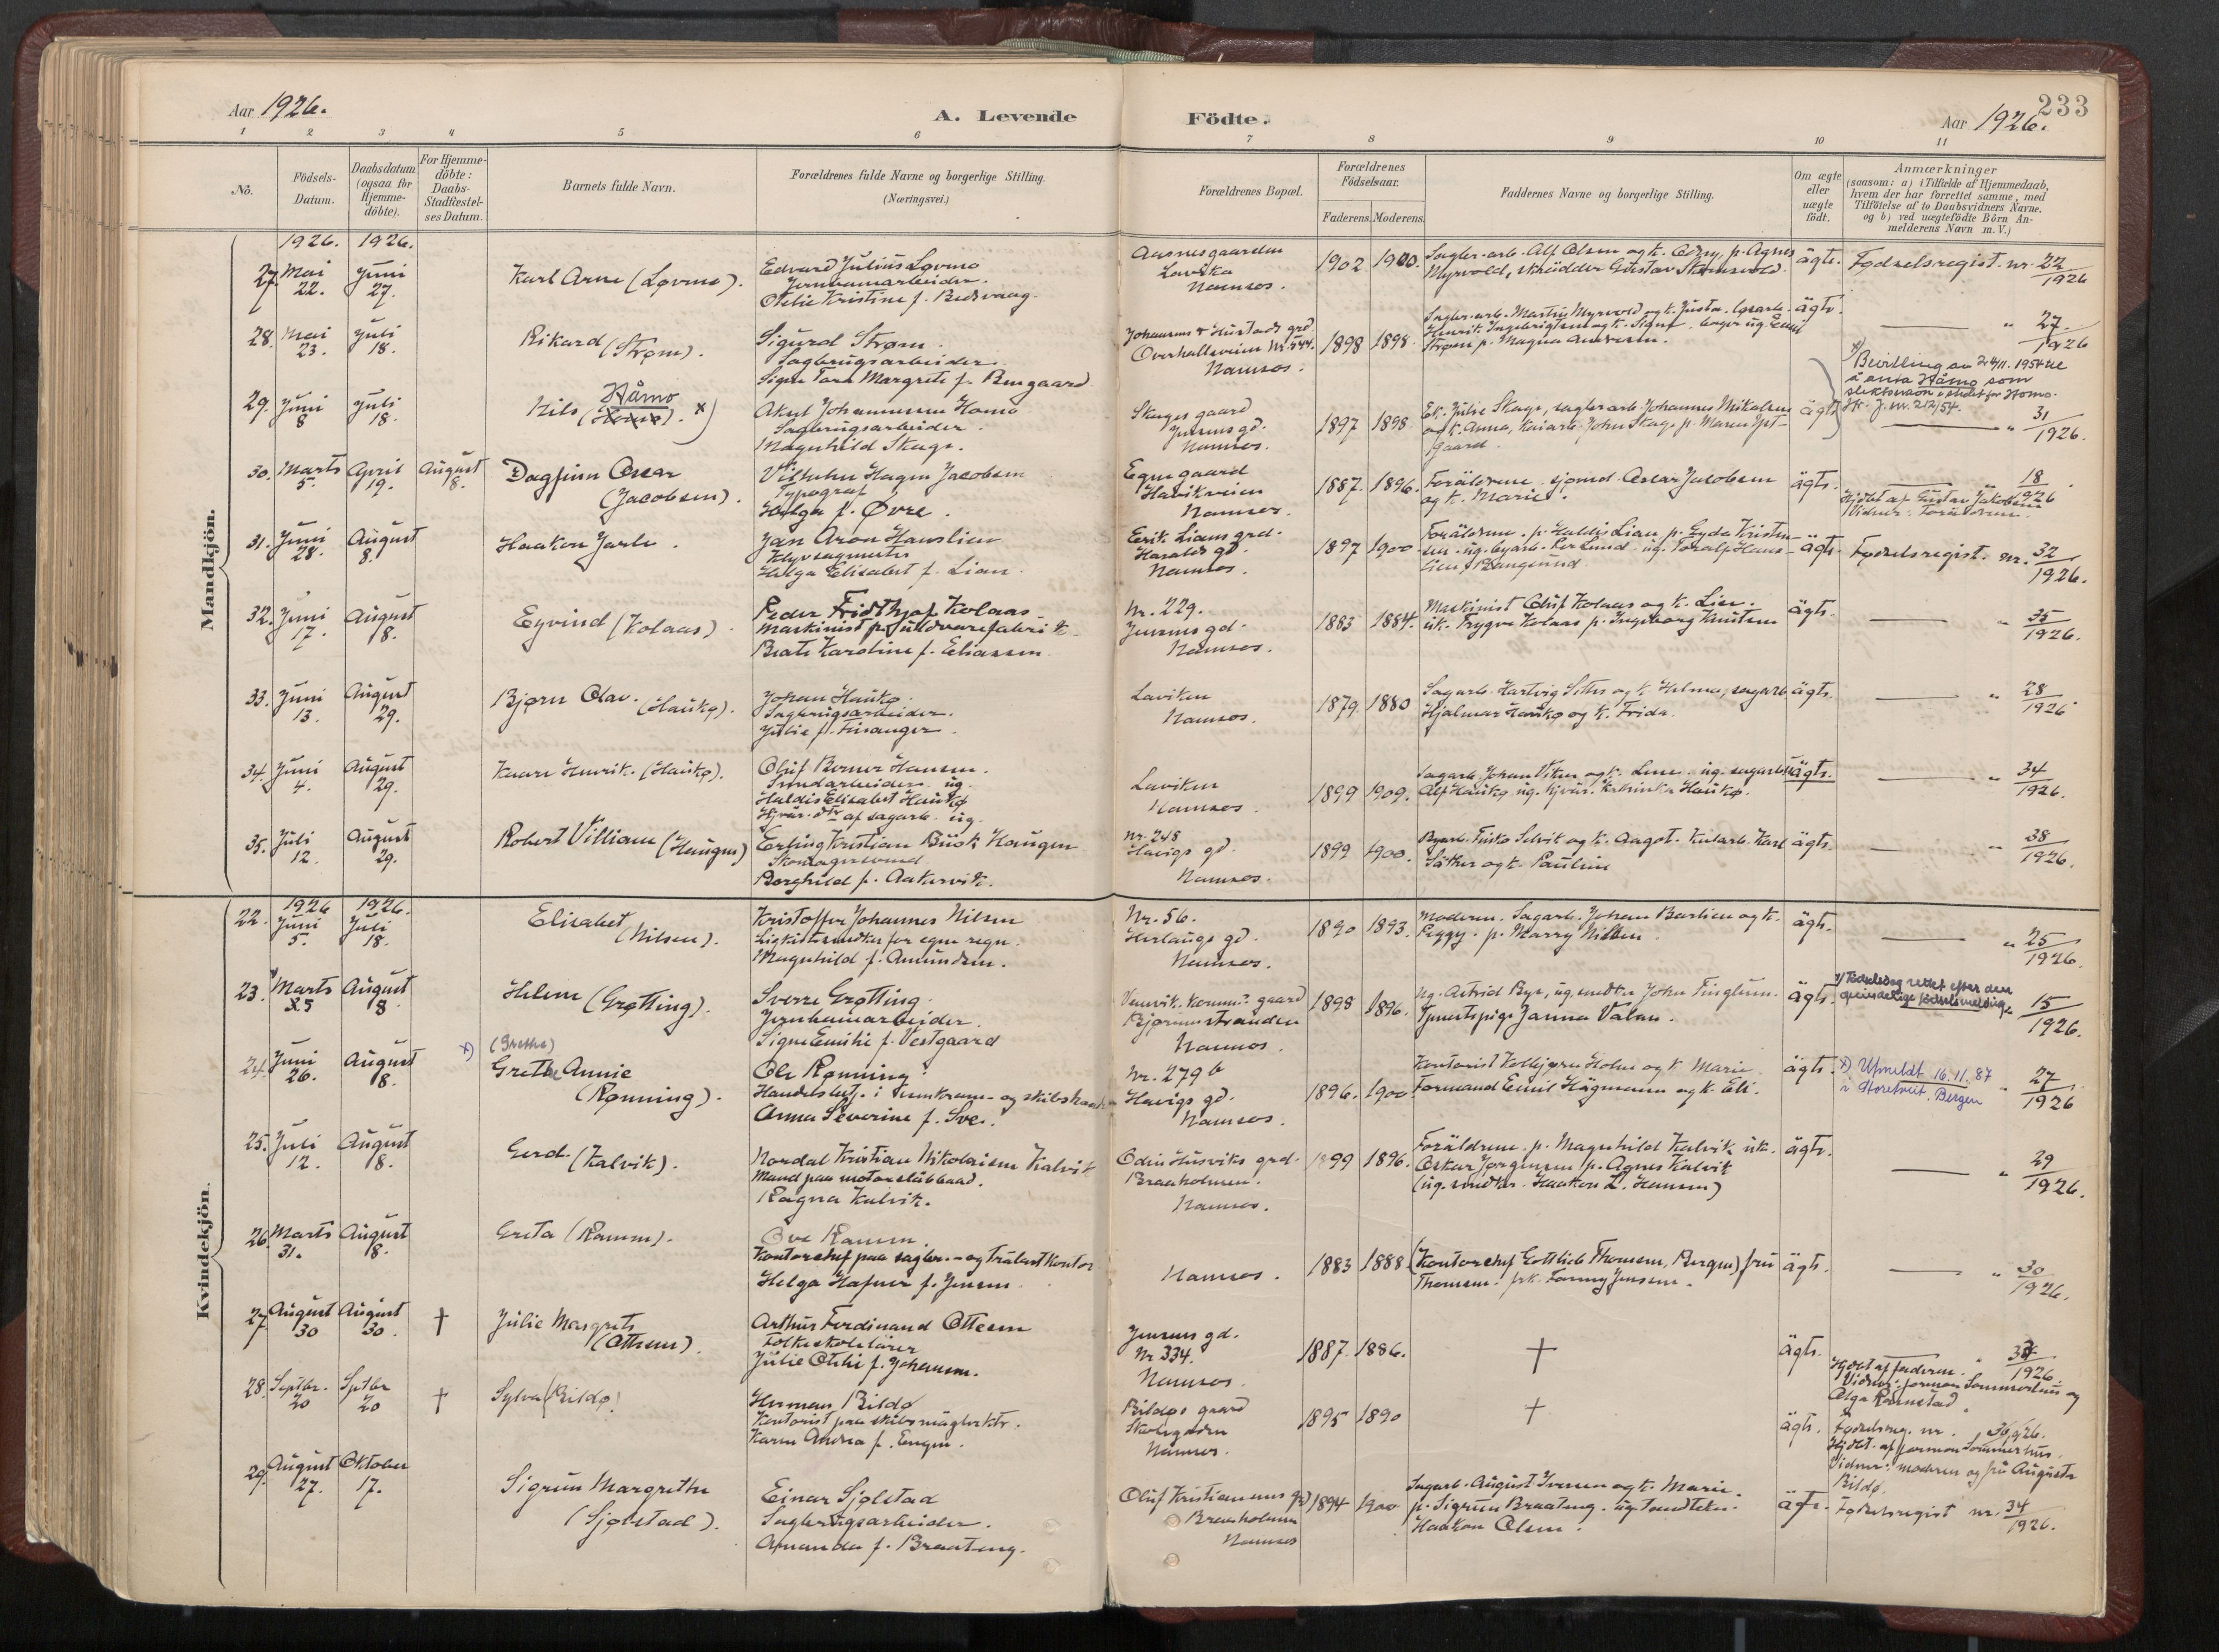 233
Aar 1926.
A. Levende
Födte.
Aar 1926.
1 2 3 4 5 6 7 8 9 10 11
No.
Födsels-
Datum.
Daabsdatum
(ogsaa for
Hjemme-
döbte).
For Hjemme-
döbte:
Daabs-
Stadfæstel-
ses Datum.
Barnets fulde Navn.
Forældrenes fulde Navne og borgerlige Stilling.
(Næringsvei.)
Forældrenes Bopæl.
Forældrenes
Födselsaar.
Faderens. Moderens.
Faddernes Navne og borgerlige Stilling.
Om ægte
eller
uægte
födt.
Anmærkninger
(saasom: a) i Tilfælde af Hjemmedaab,
hvem der har forrettet samme, med
Tilföielse af to Daabsvidners Navne.
og b) ved uægtefödte Börn An-
melderens Navn m. V.)
Mandkjön.
1926. 1926.
27. Mai 22. Juni 27.
Karl Arne (Løvmo).
Edvard Julius Løvmo
Jernbanearbeider.
Otelie Kristine f. Bedsvaag.
Aasnesgaarden
Lavika
Namsos.
1902 1900.
Sagbr. arb. Alf Olsen og k. p. Agnes
Myrvold, skrädder Gustav
ägte.
Fødselsregist. nr. 22/1926
28. Mai 23. Juli 18.
Rikard (Strøm).
Sigurd Strøm.
Sagbrugsarbeider
Signe Tora Margrete f. Bergaard.
Overhallsveien Nr. 544.
Namsos.
1898 1898.
Sagbr. arb. Martin Myrvold og k.
Henrik Ingebrigtsen og k. Signe.
Strøm p. Magna
ägte.
" 27./1926
29. Juni 8 Juli 18.
Nils (Homo). x)
Håmo
Aksel Johannessen Homo
Sagbrugsarbeider.
Magnhild Skage.
Skages gaard
Jensens gd.
Namsos.
1897 1898
Ek. Julie Skage, sagbr. arb. Johannes Mikalsen
og k. Anna, John Skage p. Maren
gaard.
ägte
x) Bevilling av 24/11. 1954 til
å anta Håmo som
slektsnavn istedet for Homo.
Jk. J. nr. 212/54.
" 31/1926.
30. Marts 5. April 19. August 8.
Dagfinn Oscar
(Jacobsen).
Vilhelm Hagen Jacobsen
Typograf
Helga f. Øvre.
Egen gaard
Havikveien
Namsos.
1887. 1896.
Forældrene, sjømd. Oscar Jacobsen
og k. Marie.
ägte.
" 18/1926
Hjdbt af Gustav Jakobsen
Vidner: Forældrene.
31. Juni 28. August 8.
Haakon Jarle.
Jan Aron Hauslien
Helga Elisabet f. Lian.
Erik Lians grd.
Haralds gd.
Namsos.
1897 1900
Forældrene. p. Haldis Lian p. Gyda Kristen-
sen. ug. byarb. Per Lund. ug. Toralf Haus-
lien, Rangsund.
ägte.
Fødselsregist. nr. 32/1926.
32. Juni 17. August 8.
Eyvind (Kolaas).
Peder Fridthjof Kolaas
Maskinist p. uldvarefabrik.
Beate Karoline f. Eliassen.
Nr. 229.
Jensens gd.
Namsos.
1883 1884.
Maskinist Oluf Kolaas og k.
uk. Trygve Kolaas p. Ingeborg Knutsen
ägte.
" 35/1926.
33. Juni 13. August 29.
Bjørn Olav. (Haukø).
Johan Haukø.
Sagbrugsarbeider.
Julie f. Finanger.
Laviken
Namsos.
1879 1880
Sagarb. Hartvig Seter og k. Helma, sagarb.
Hjalmar Haukø og k. Frida.
ägte.
" 28/1926
34. Juni 4. August 29.
Kaare Henrik. (Haukø).
Oluf Berner Hansen.
ug.
Haldis Elisabet Haukø
Hjvær. dtr af sagarb. ug.
Laviken
Namsos.
1899 1909.
Sagarb. Johan Viken og k. Lene. ug. sagarb.
Alf Haukø ug. hjvær. Haukø.
ägte.
" 34/1926.
35. Juli 12. August 29.
Robert Villiam (Haugen)
Erling Kristian Buøk Haugen
Borghild f. Aakervik.
Nr. 248
Havigs gd.
Namsos.
1899 1900.
Byarb. Selvik og k. Aagot. Karl
Säther og k. Pauline
ägte.
" 38/1926.
Kvindekjön.
1926 1926.
22. Juni 5. Juli 18.
Elisabet
(Nilsen).
Kristoffer Johannes Nilsen
Ligkistesnedker for egen regn.
Magnhild f. Amundsen.
Nr. 56.
Herlaugs gd.
Namsos.
1890 1893.
Moderen. Sagarb. Johan Barlien og k.
Peggy. p. Marry Nilsen.
ägte.
" 25/1926.
23. Marts 25 August 8
Helene (Grøtting).
Sverre Grøtting.
Jernbanearbeider.
Signe Emilie f. Vestgaard
Vemvik. komm. gaard
Bjørumstranden
Namsos.
1898 1896.
ug. Astrid Bye, ug. snedker John Finglum.
Tjenestepige Janna Valan.
ägte.
x) Fødselsdag rettet efter den
oprindelige fødselsmelding.
15/1926.
24. Juni 26. August 8.
x) (Grethe)
Grete Annie
(Rønning).
Ole Rønning
Handelsbetj. i Jernkram- og skibshandel
Anna Severine f. Sve.
Nr. 279 b
Havigs gd.
Namsos.
1896. 1900
Kontorist Kolbjørn Holm og k. Marie.
Formand Emil Hagmann og k. Eli.
ägte.
x) Utmeldt 16.11.87
i Storetveit, Bergen
" 27/1926
25. Juli 12. August 8.
Gerd. (Kalvik).
Nordal Kristian Nikolaisen Kalvik
Mand paa motorslæbbaad.
Ragna Kalvik.
Odin Husviks grd.
Braaholmen.
Namsos.
1899 1896.
Forældrene. p. Magnhild Kalvik uk.
Oskar Jørgensen p. Agnes Kalvik
(ug. snedker Haakon L. Hansen)
ägte.
" 29/1926.
26. Marts 31. August 8.
Greta (Ramm).
Ove Ramm.
Kontorchef paa sagbr.- og Trælastkontor
Helga Hafner f. Jensen
Namsos.
1883 1888.
(Kontorchef Gottlieb Thomsen, Bergen) fru
Thomsen. frk. Fanny Jensen.
ägte.
" 30/1926.
27. August 30 August 30. †
Julie Margrete
(Ottesen).
Arthur Ferdinand Ottesen
Folkeskolelärer
Julie Otelie f. Johansen.
Jensens gd.
Nr. 334.
Namsos.
1887. 1886.
†
ägte.
" 33/1926
Hjdbt af faderen.
Vidner: jormor Sommerhus og
Olga Rørmestad
28. Septbr. 20 Sptbr 20 †
Sylva (Bildø)
Herman Bildø
Kontorist paa skibsmæglerktr.
Karen Andrea f. Engen.
Bildøs gaard
Skolegaden
Namsos.
1895 1890
†
ägte.
Fødselsreg. nr. 36/1926.
Hjdbt. af jormor Sommerhus.
Vidner: moderen og fru Augusta
Bildø.
29. August 27. Oktober 17.
Sigrun Margrethe
(Sjølstad).
Einar Sjølstad
Sagbrugsarbeider.
Amanda f. Braateng.
Oluf Kristiansens gd
Braaholmen
Namsos
1894 1900
Sagarb. August Iversen og k. Marie.
p. Sigrun Braateng. ug.
Haakon Olsen.
ägte.
Fødselsregist nr. 34/1926.